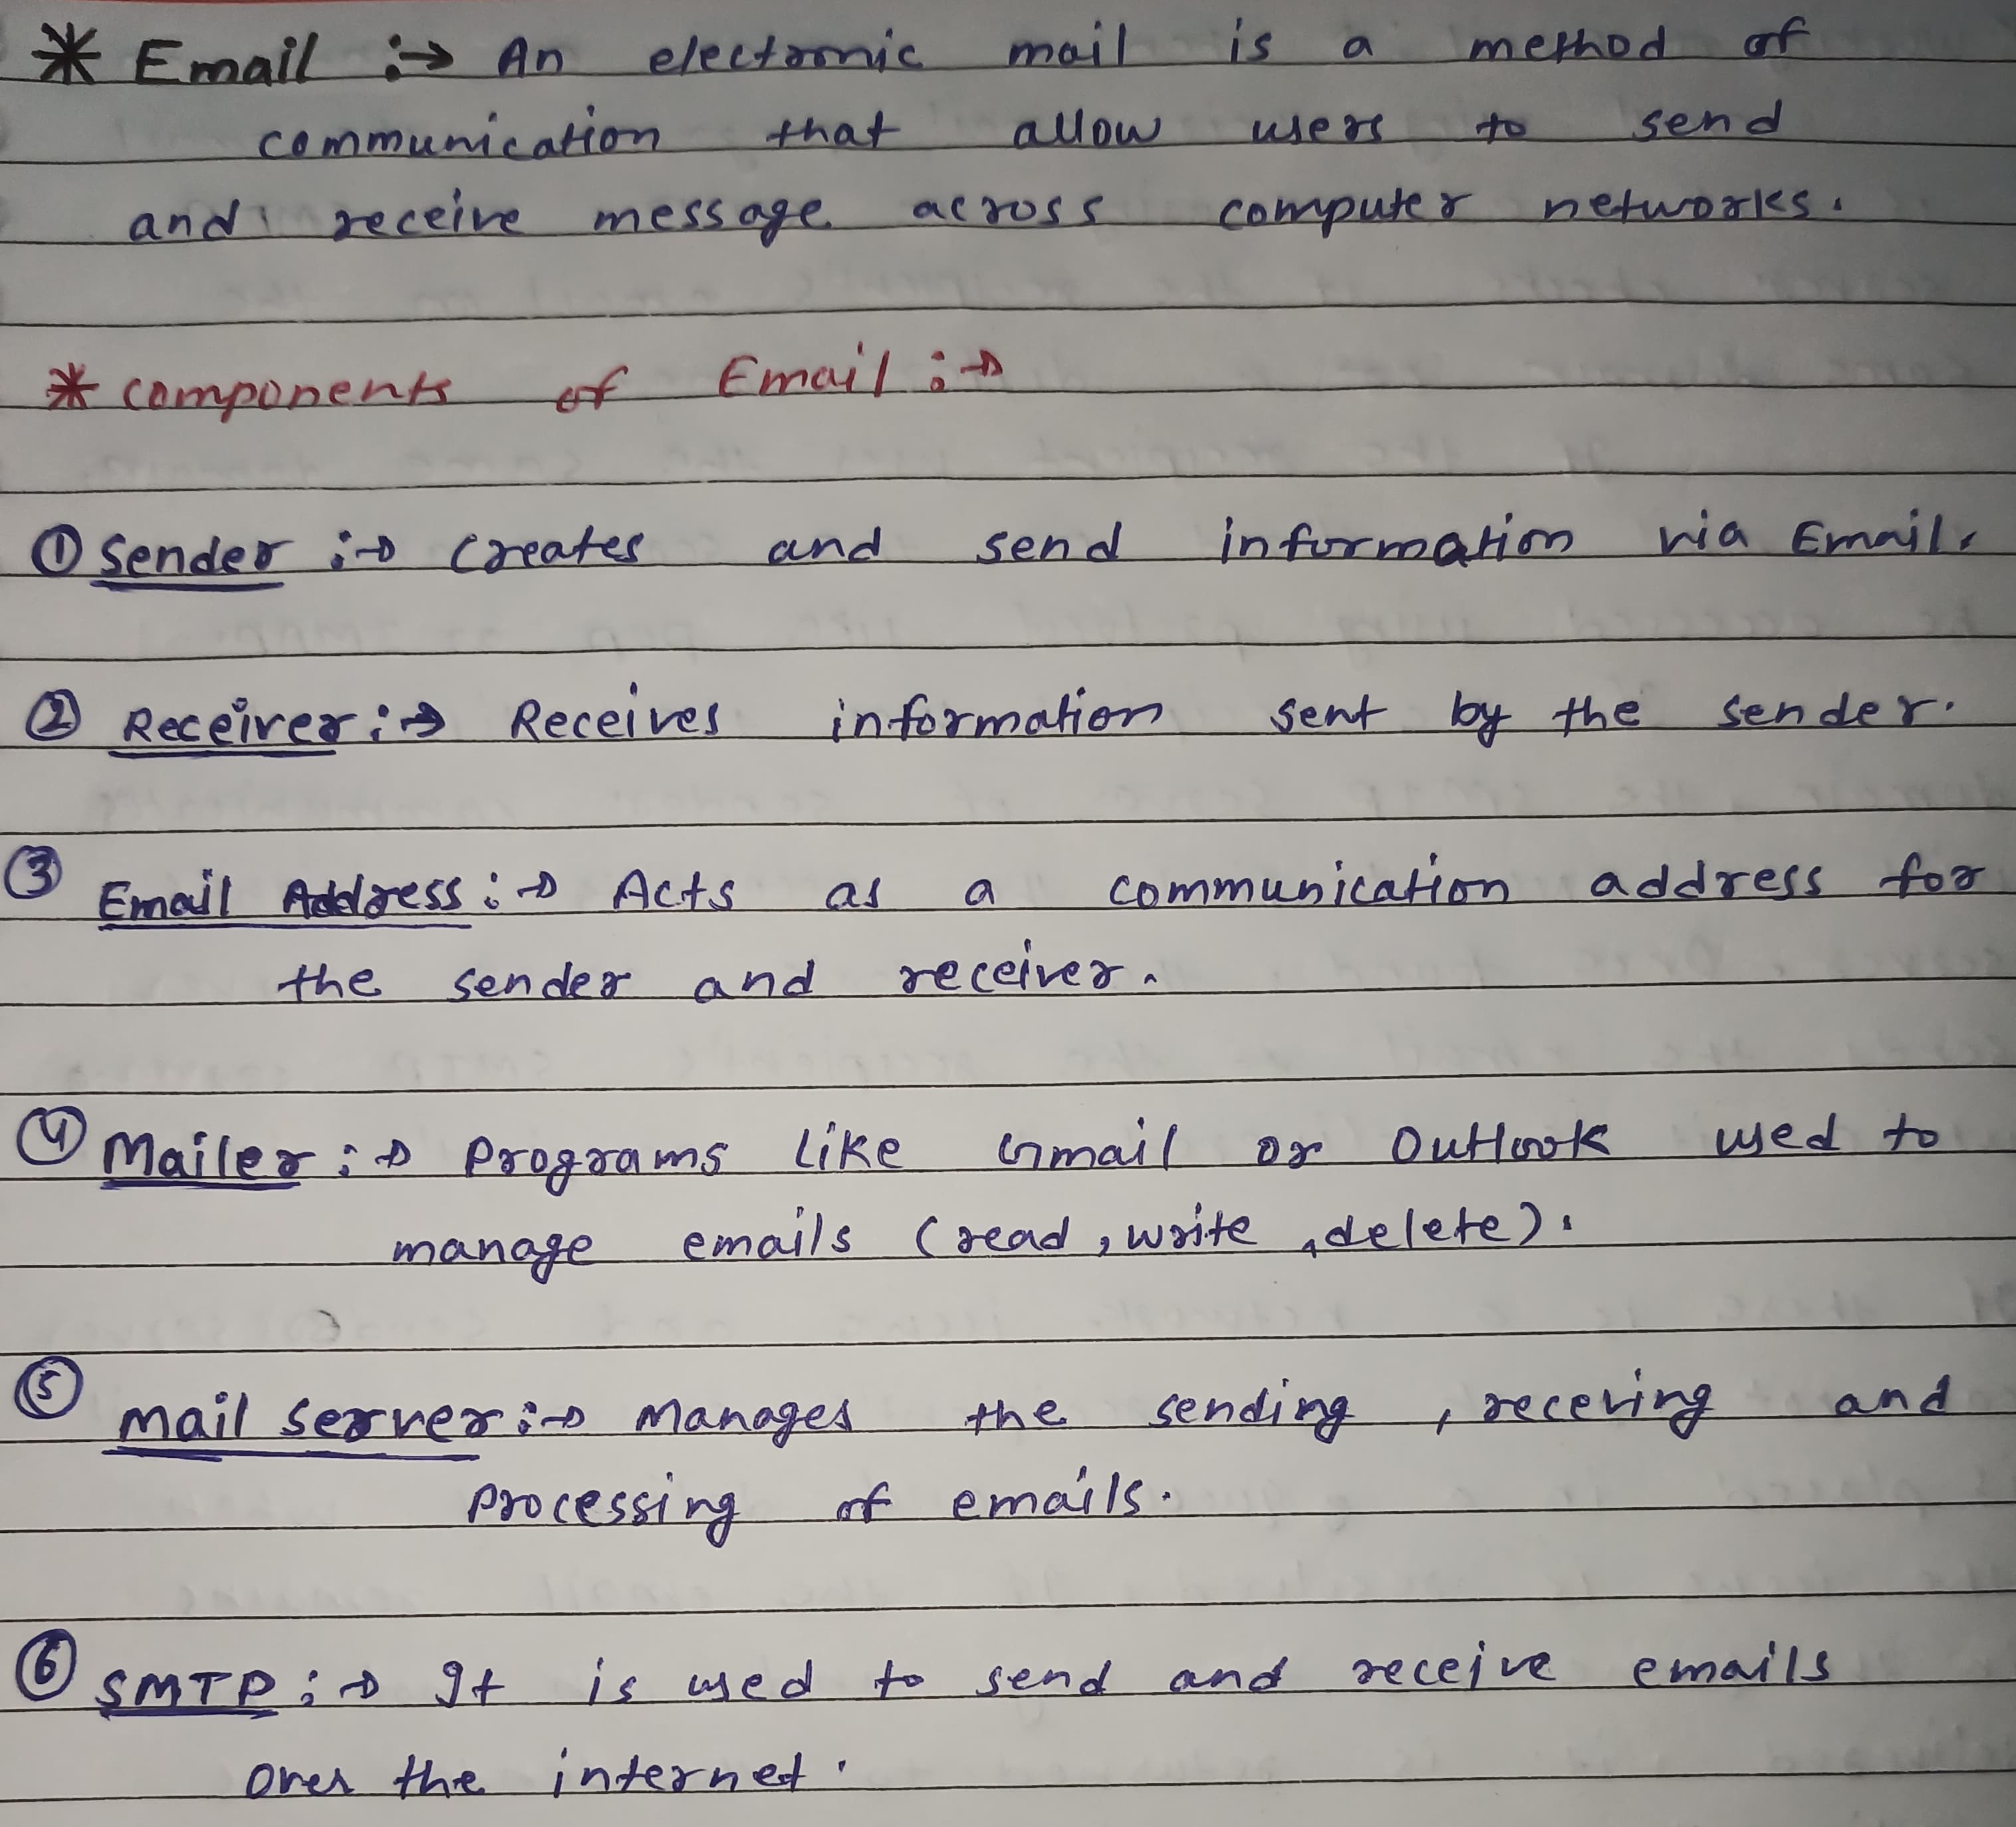 * Email :→ An electronic mail is a method of
communication that allow users to send
and receive message across computer networks.
* components of Email :→
① Sender :→ Creates and send information via Email.
② Receiver :→ Receives information sent by the sender.
③ Email Address :→ Acts as a communication address for
the sender and receiver.
④ Mailer :→ Programs like Gmail or Outlook used to
manage emails (read, write, delete).
⑤ Mail server :→ Manages the sending, receving and
Processing of emails.
⑥ SMTP :→ It is used to send and receive emails
over the internet.